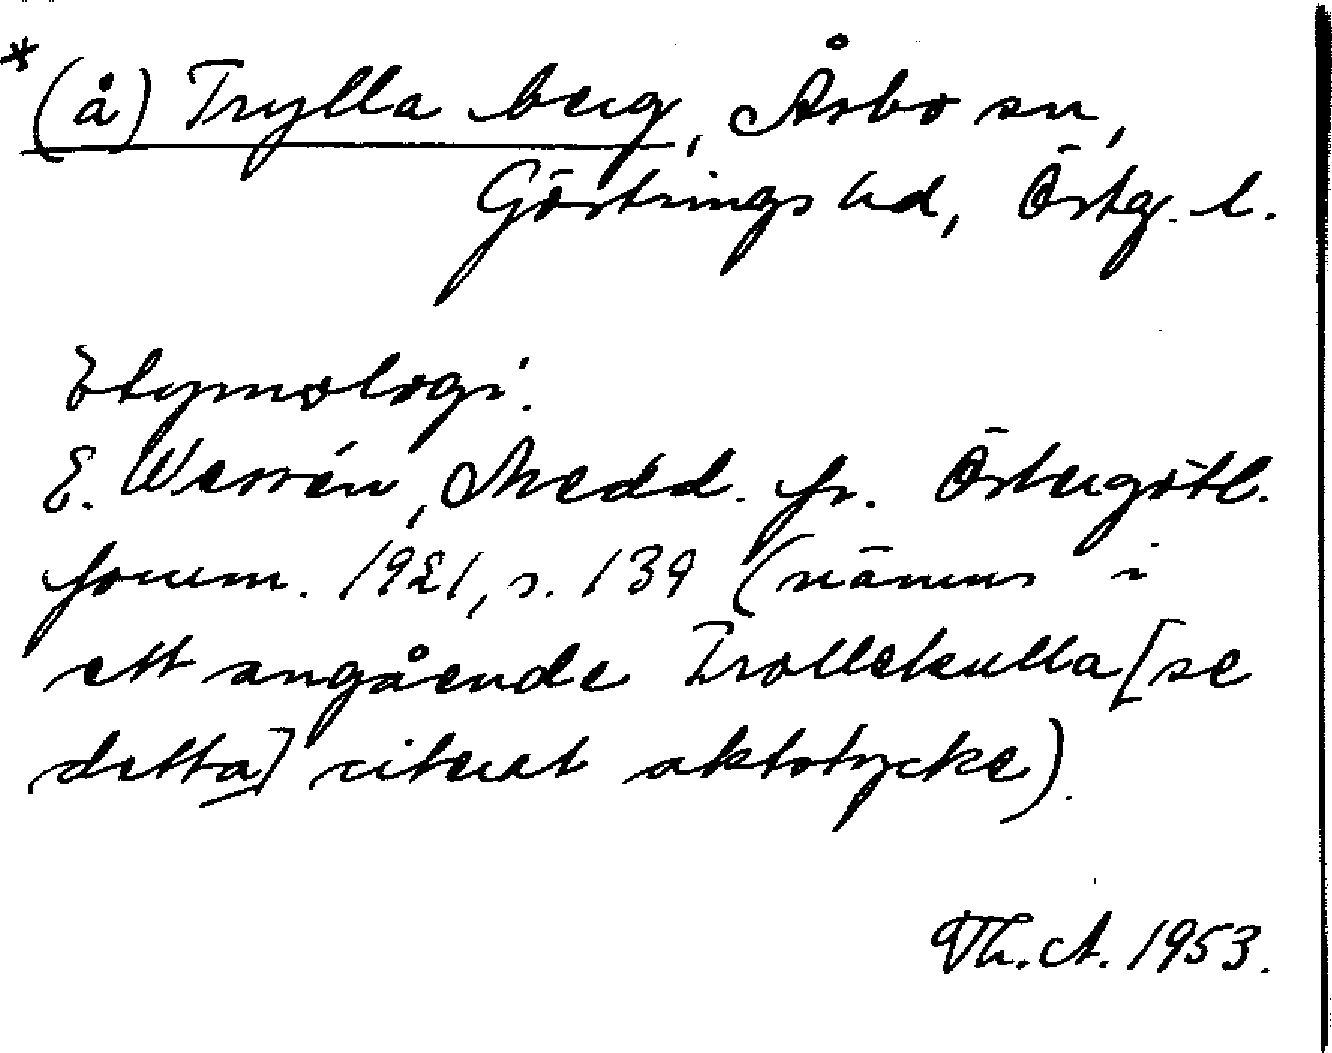 *(å) Trylla berg, Åsbo sn,
Göstrings hd, Östg. l.
Etymologi.
E. Wessén, Medd. fr. Östergötl.
fornm. 1921, s. 139 (nämns i
ett angående Trollekulla [se
detta] citerat aktstycke).
Th. A. 1953.